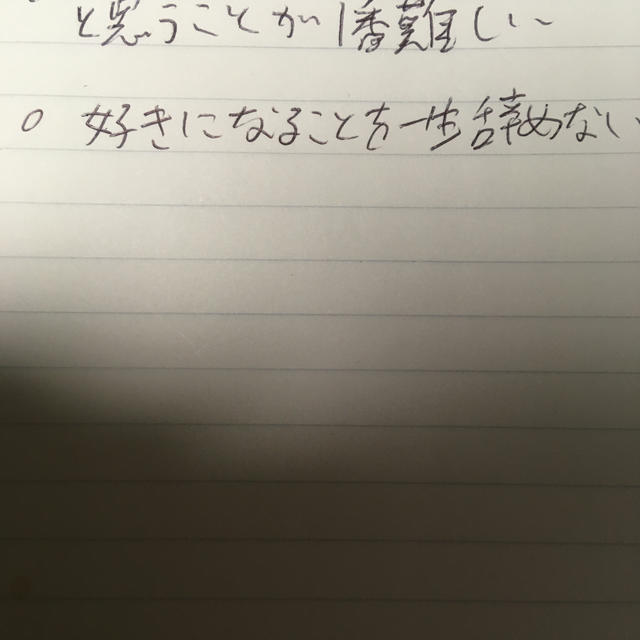 と思うことが1番難しい
○ 好きになることを一生辞めない